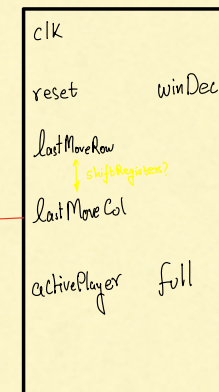 clk
reset winDec
lastMoveRow
shiftRegisters?
lastMoveCol
activePlayer full